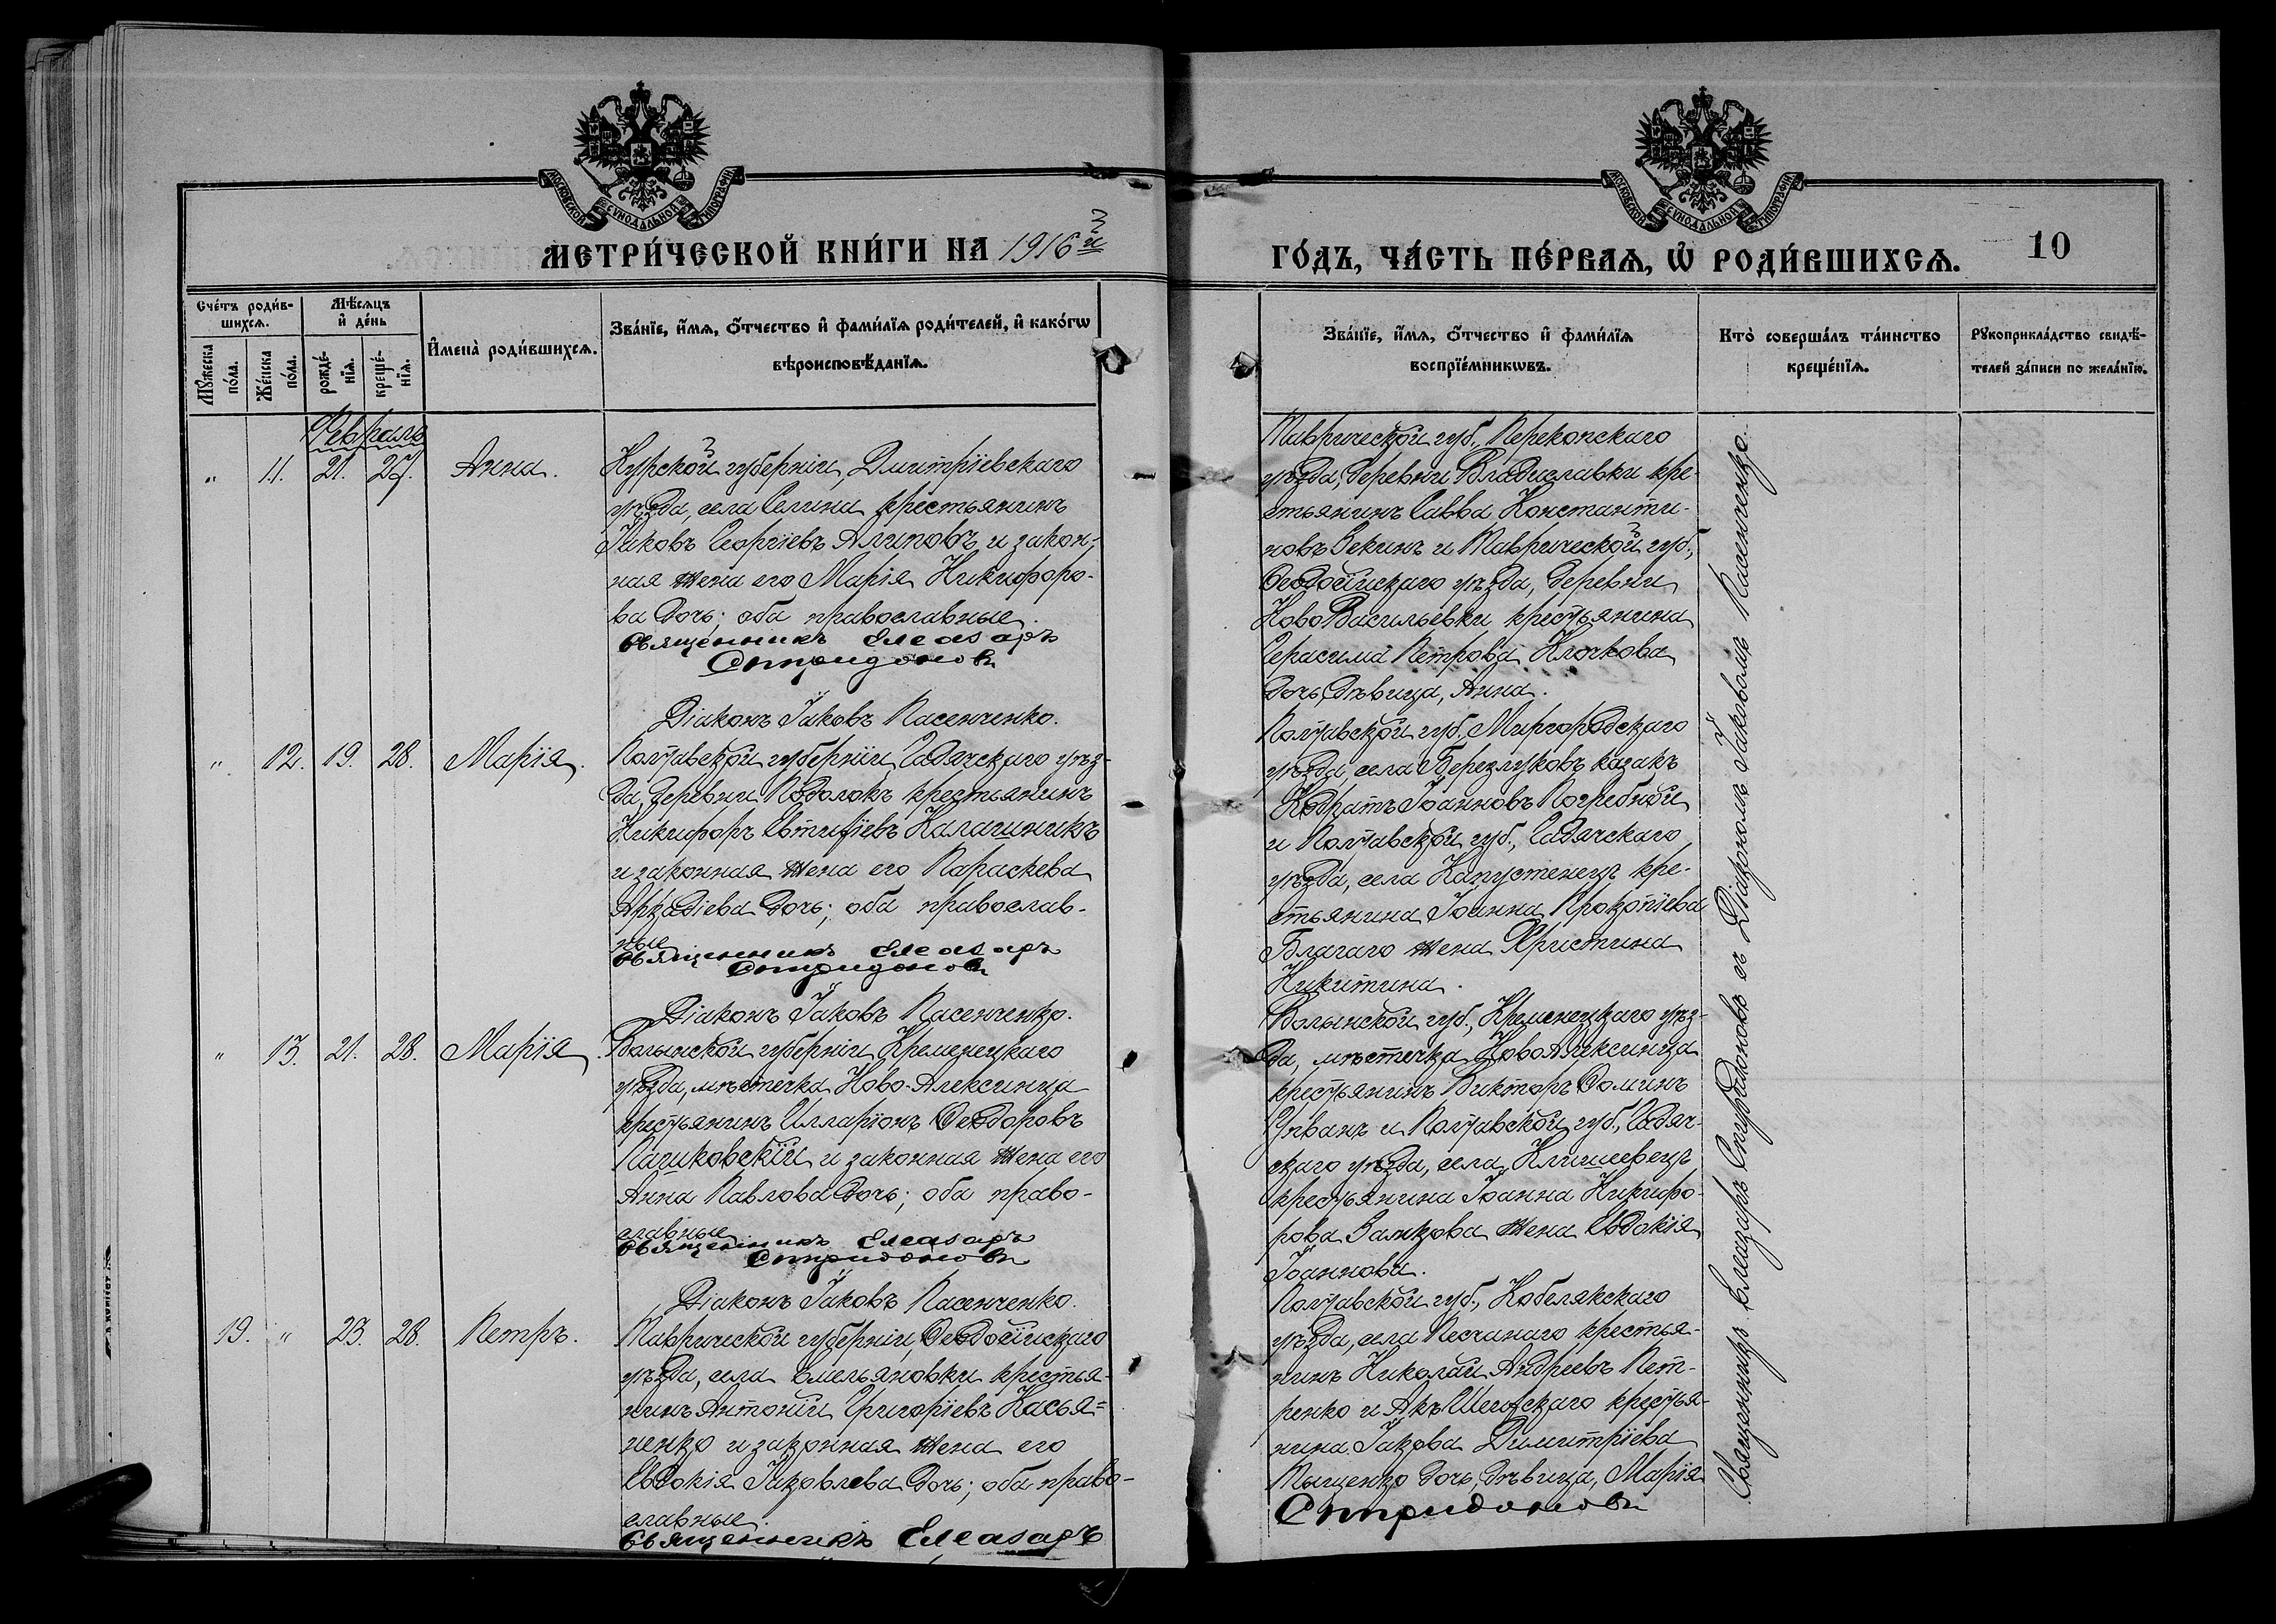 МОСКОВСКОЙ СѴНОДАЛЬНОЙ ТИПОГРАФІИ
МОСКОВСКОЙ СѴНОДАЛЬНОЙ ТИПОГРАФІИ
МЕТРИ́ЧЕСКОЙ КНИ́ГИ НА 1916й
ГО́ДЪ, ЧА́СТЬ ПЕ́РВАѦ, Ѡ҆ РОДИ́ВШИХСѦ.
10
Сче́тъ роди́в-
шихсѧ.
Мꙋ́жеска
по́ла.
Же́нска
по́ла.
Мѣ́сѧцъ
и҆ де́нь
рожде́-
нїѧ.
креще́-
нїѧ.
И҆мена̀ роди́вшихсѧ.
Зва́нїе, и҆́мѧ, ѻ҆́тчество и҆ фами́лїѧ роди́телей, и҆ како́гѡ
вѣроисповѣ́данїѧ.
Зва́нїе, и҆́мѧ, ѻ҆́тчество и҆ фами́лїѧ
воспрїе́мникѡвъ.
Кто̀ соверша́лъ та́инство
креще́нїѧ.
Рꙋкоприкла́дство свидѣ́-
телей за́писи по жела́нїю.
Февраль
" 11. 21. 27. Анна.
Курской губерніи, Дмитріевскаго
уѣзда, села Селина крестьянинъ
Іаковъ Георгіевъ Алиповъ и закон-
ная жена его Марія Никифоро-
ва дочь; оба православные.
Священникъ Елеазаръ
Спиридоновъ
Діаконъ Іаковъ Пасенченко.
Таврической губ., Перекопскаго
уѣзда, деревни Владиславки кре-
стьянинъ Савва Константи-
новъ Зекинъ и Таврической губ.,
Ѳеодосійскаго уѣзда, деревни
НовоВасильевки крестьянина
Герасима Петрова Клочкова
дочь, дѣвица, Анна.
" 12. 19. 28. Марія.
Полтавской губерніи, Гадячскаго уѣз-
да, деревни Подолокъ крестьянинъ
Никифоръ Евтихіевъ Калашникъ
и законная жена его Параскева
Аркадіева дочь; оба православ-
ные
Священникъ Елеазаръ
Спиридоновъ
Діаконъ Іаковъ Пасенченко.
Полтавской губ., Миргородскаго
уѣзда, села Березлуковъ казакъ
Кодратъ Іоанновъ Погребной
и Полтавской губ., Гадячскаго
уѣзда, села Капустенецъ кре-
стьянина Іоанна Прокопіева
Благаго жена Христина
Никитина.
" 13. 21. 28. Марія.
Волынской губерніи Кременецкаго
уѣзда, мѣстечка Ново-Алексинца
крестьянинъ Илларіонъ Ѳеодоровъ
Пашковскій и законная жена его
Анна Павлова дочь; оба право-
славные
Священникъ Елеазаръ
Спиридоновъ
Діаконъ Іаковъ Пасенченко.
Волынской губ., Кременецкаго уѣз-
да, мѣстечка НовоАлексинца
крестьянинъ Викторъ Ѳоминъ
и Полтавской губ., Гадяч-
скаго уѣзда, села
крестьянина Іоанна Никифо-
рова Замкова жена Евдокія
Іоаннова.
19. " 23. 28. Петръ.
Таврической губерніи, Ѳеодосійскаго
уѣзда, села Емельяновки крестья-
нинъ Антоній Григоріевъ Касья=
ненко и законная жена его
Евдокія Іаковлева дочь; оба право-
славные.
Священникъ Елеазаръ
Полтавской губ., Кобелякскаго
уѣзда, села Песчанаго крестья-
нинъ Николай Андреевъ Пет-
ренко и Акъ Шеихскаго крестья-
нина Іакова Димитріева
дочь, дѣвица, Марія
Спиридоновъ
Священникъ Елеазаръ Спиридоновъ съ Діакономъ Іаковомъ Пасенченко.